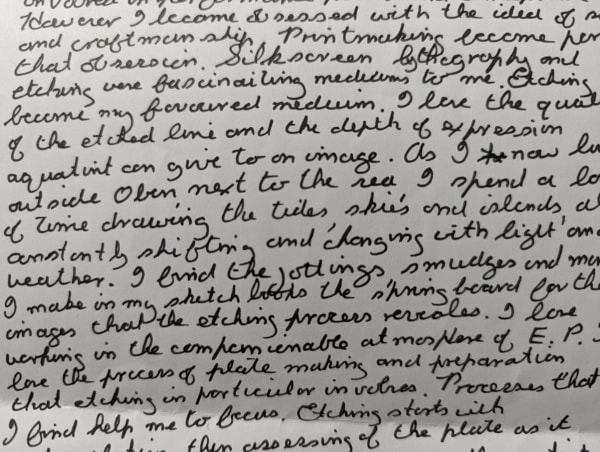 However I become obsessed with the idea of
and craftmanship. Printmaking become
that obsession. Silkscreen lythography and
etching were fascinaiting mediums to me. Etching
become my favoured medium. I love the
of the etched line and the depth of expression
aquatint can give to an image. As I now
outside Oban next to the sea I spend a
of time drawing the tides skies and islands
constantly shifting and changing with light
weather. I find the jottings, smudges and
I make in my sketch books the spring board for
images that the etching process reveales. I love
working in the companionable atmosphere of E. P.
love the process of plate making and preparation
that etching in particular involves. Processes that
I find help me to focus. Etching starts with
then assessing of the plate as it